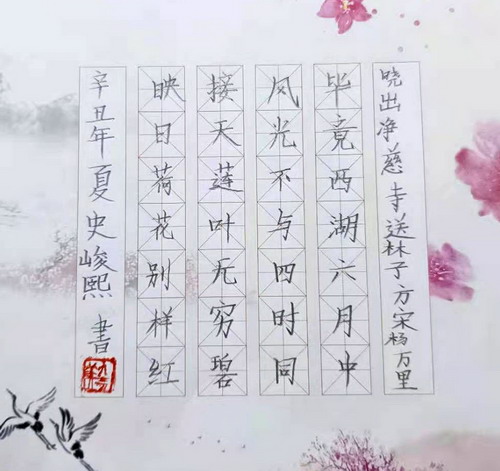 晓出净慈寺送林子方宋杨万里
毕竟西湖六月中
风光不与四时同
接天莲叶无穷碧
映日荷花别样红
辛丑年夏史峻熙書